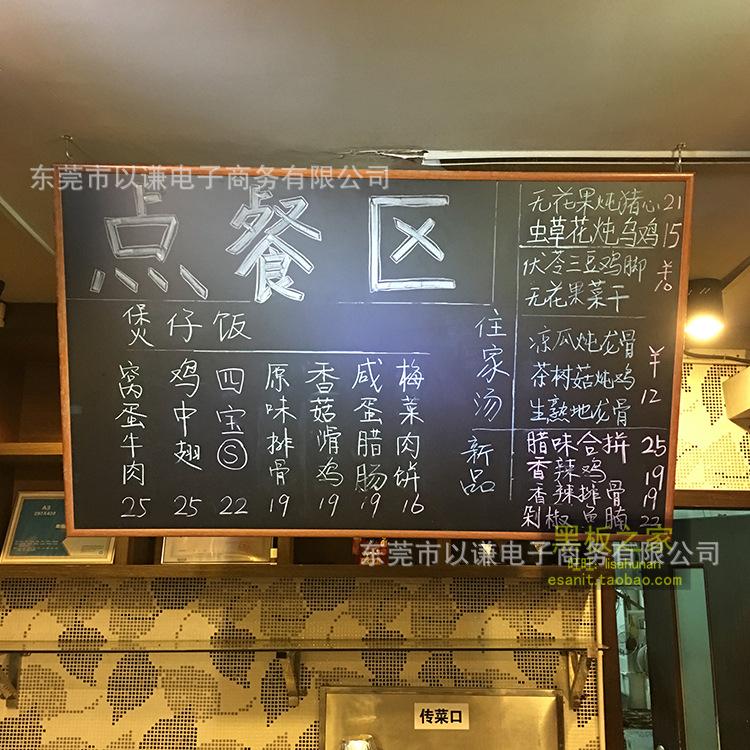 东莞市以谦电子商务有限公司
点餐区
煲仔饭
窝蛋牛肉 25
鸡中翅 25
四宝Ⓢ 22
原味排骨 19
香菇滑鸡 19
咸蛋腊肠 19
梅菜肉饼 16
住家汤
无花果炖猪心 21
虫草花炖乌鸡 15
伏苓三豆鸡脚
无花果菜干
¥10
凉瓜炖龙骨
茶树菇炖鸡
生熟地龙骨
¥12
新品
腊味合拼 25
香辣鸡 19
香辣排骨 19
剁椒鱼腩 22
东莞市以谦电子商务有限公司
黑板之家
旺旺: lisahunan
esanit.taobao.com
传菜口
A3